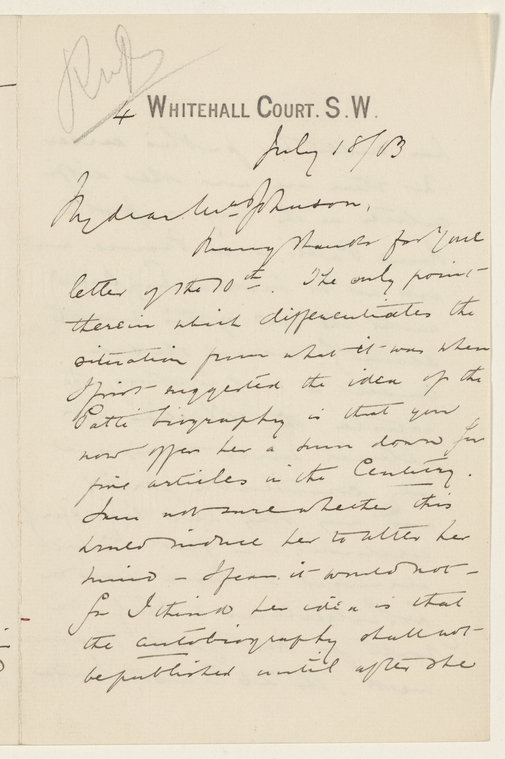 4 WHITEHALL COURT. S.W.
July 18/03
My dear Mr. Johnson,
Many thanks for your
letter of the 10th. The only point
therein which differentiates the
situation from what it was when
I first suggested the idea of the
Patti biography is that you
now offer her a sum down for
five articles in the Century.
I am not sure whether this
would induce her to alter her
mind – I fear it would not –
for I think her idea is that
the autobiography shall not
be published until after she